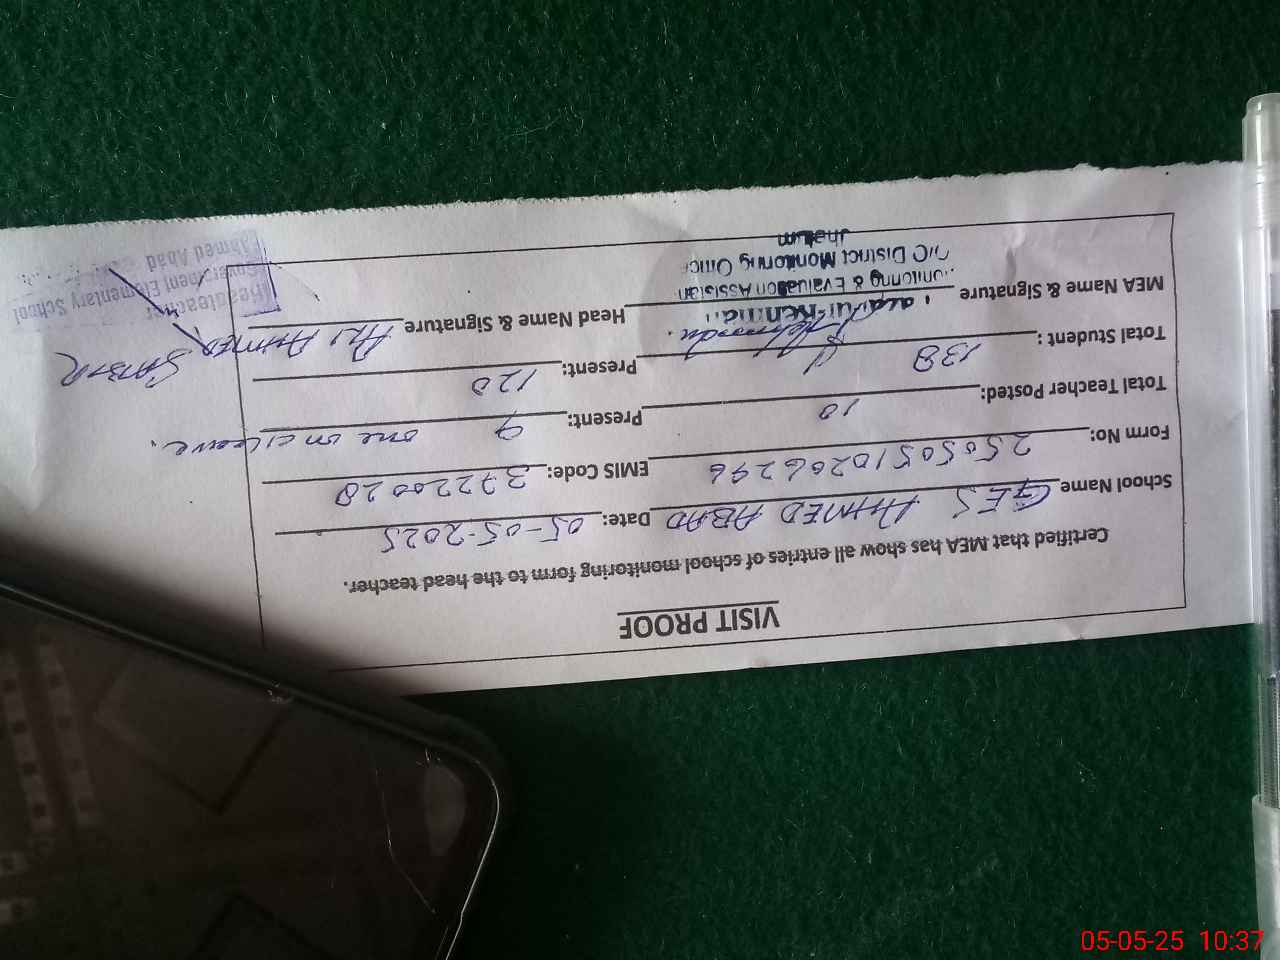 VISIT PROOF
Certified that MEA has show all entries of school monitoring form to the head teacher.
School Name GES AHMED ABAD Date: 05-05-2025
Form No: 25050510206296 EMIS Code: 37220028
Total Teacher Posted: 10 Present: 9 one on c/leave.
Total Student : 138 Present: 120
MEA Name & Signature Head Name & Signature ALI AHMED SABIR
Monitoring & Evaluation Assistan
O/C District Monitoring Offic
Jhelum
Headteacher
Government Elementary School
Ahmed Abad
05-05-25 10:37